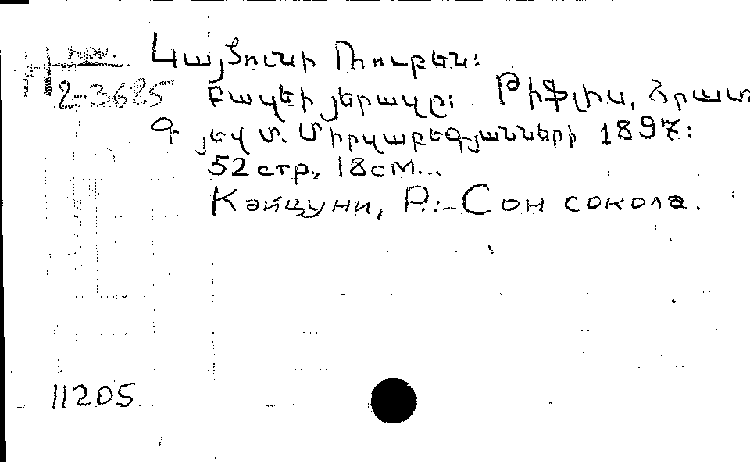 Կայծունի Ռուբեն։
2-3625 Բազեի յերազը։ Թիֆլիս, Հրատ
Գ յեվ Մ. Միրզաբեգյանների 1897։
52 стр., 18 см...
Кайцуни, Р.:- Сон сокола.
11205